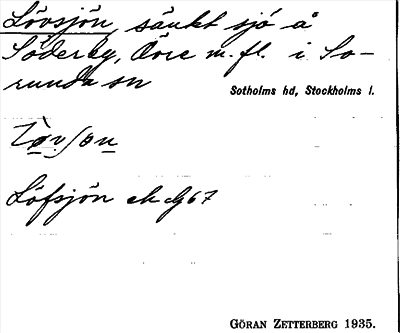 Lövsjön, sänkt sjö å
Söderby, Övre m.fl. i So-
runda sn
Sotholms hd, Stockholms l.
Löfsjön ek
GÖRAN ZETTERBERG 1935.